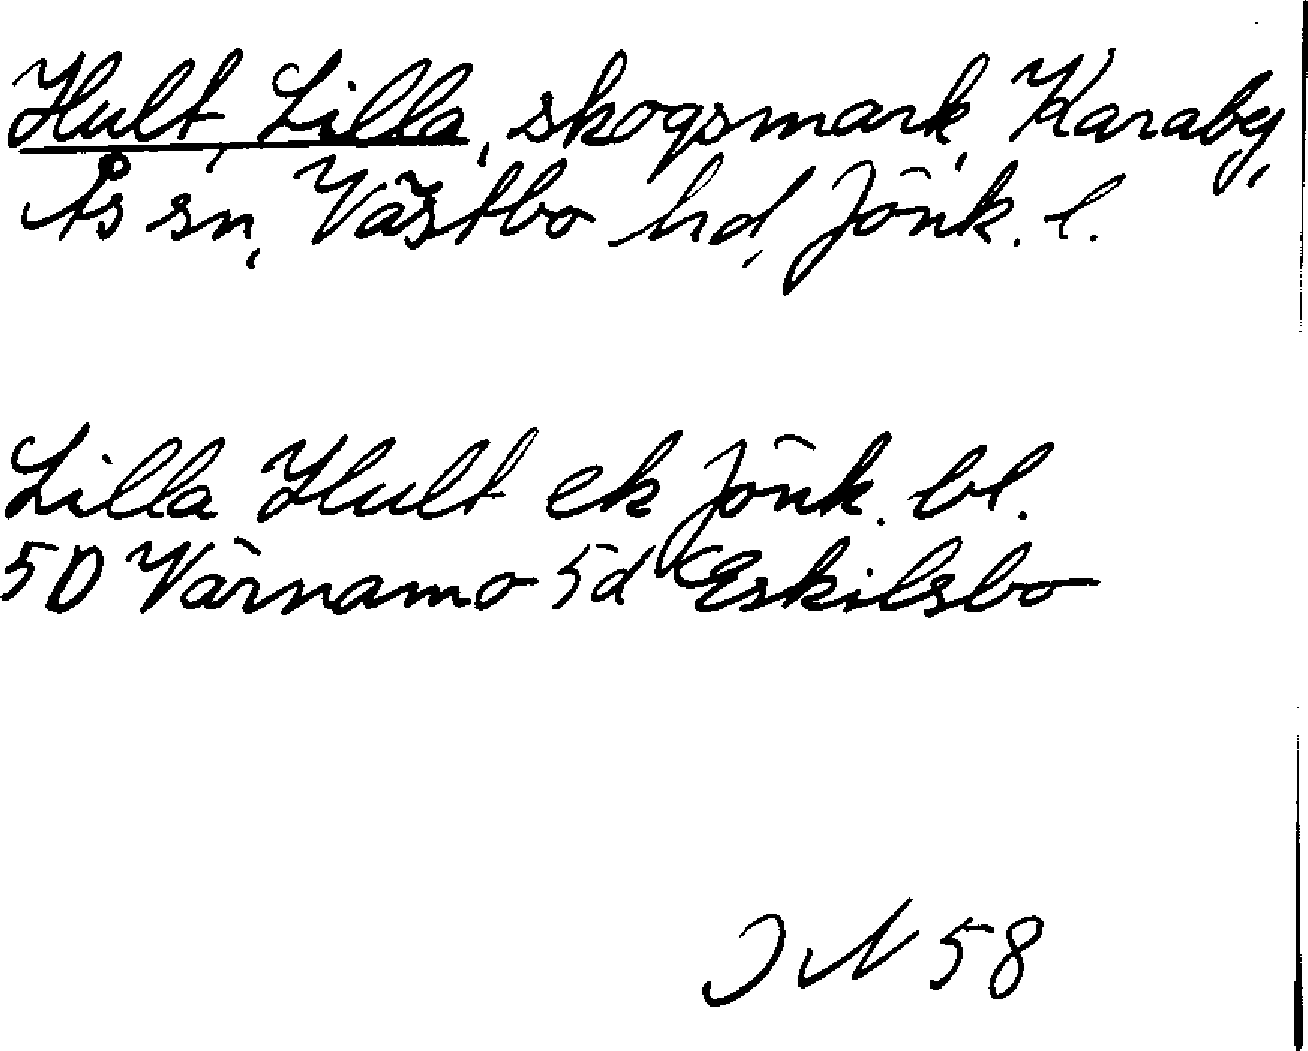 Hult, Lilla, skogsmark, Karaby,
Ås sn, Västbo hd, Jönk. l.
Lilla Hult ek Jönk. bl.
5D Värnamo 5d Eskilsbo
JN 58